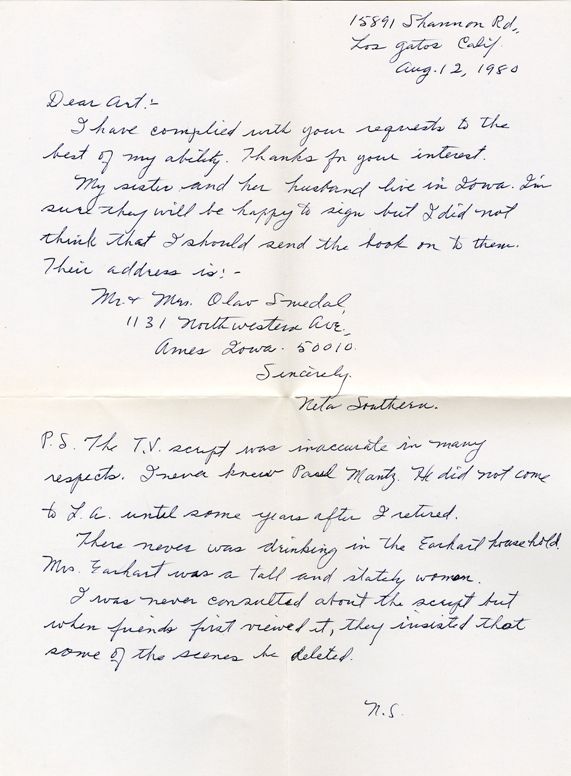 15891 Shannon Rd.,
Los Gatos Calif.
Aug. 12, 1980
Dear Art:-
I have complied with your requests to the
best of my ability. Thanks for your interest.
My sister and her husband live in Iowa. I'm
sure they will be happy to sign but I did not
think that I should send the book on to them.
Their address is:-
Mr. & Mrs. Olav Smedal,
1131 Northwestern Ave.,
Ames Iowa. 50010.
Sincerely,
Neta Southern.
P.S. The T.V. script was inaccurate in many
respects. I never knew Paul Mantz. He did not come
to L.A. until some years after I retired.
There never was drinking in the Earhart household.
Mrs. Earhart was a tall and stately women.
I was never consulted about the script but
when friends first viewed it, they insisted that
some of the scenes be deleted.
N.S.